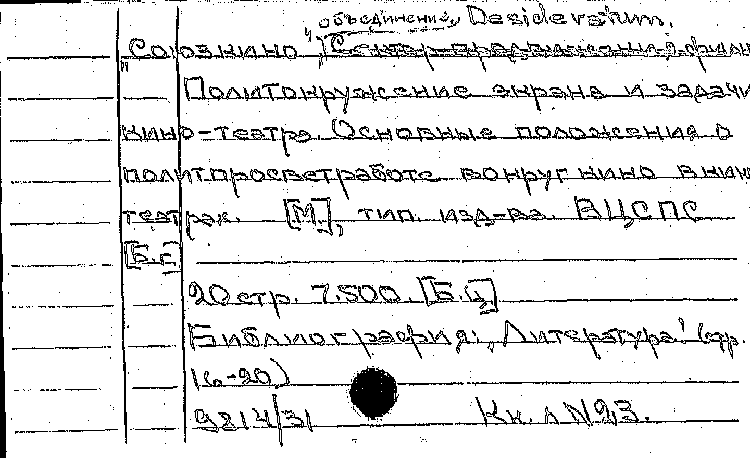 объединение, Desideratum.
"Союзкино", Сектор продвижения фильм
Политокружение экрана и задачи
кино-театра. Основные положения о
политпросветработе вокруг кино в кино
театрах. [М.], тип. изд-ва. ВЦСПС
[Б.г.]
20 стр. 7.500. [Б.ц.]
Библиография: "Литература" (стр.
16-20)
9814/31 Кн. л N 23.